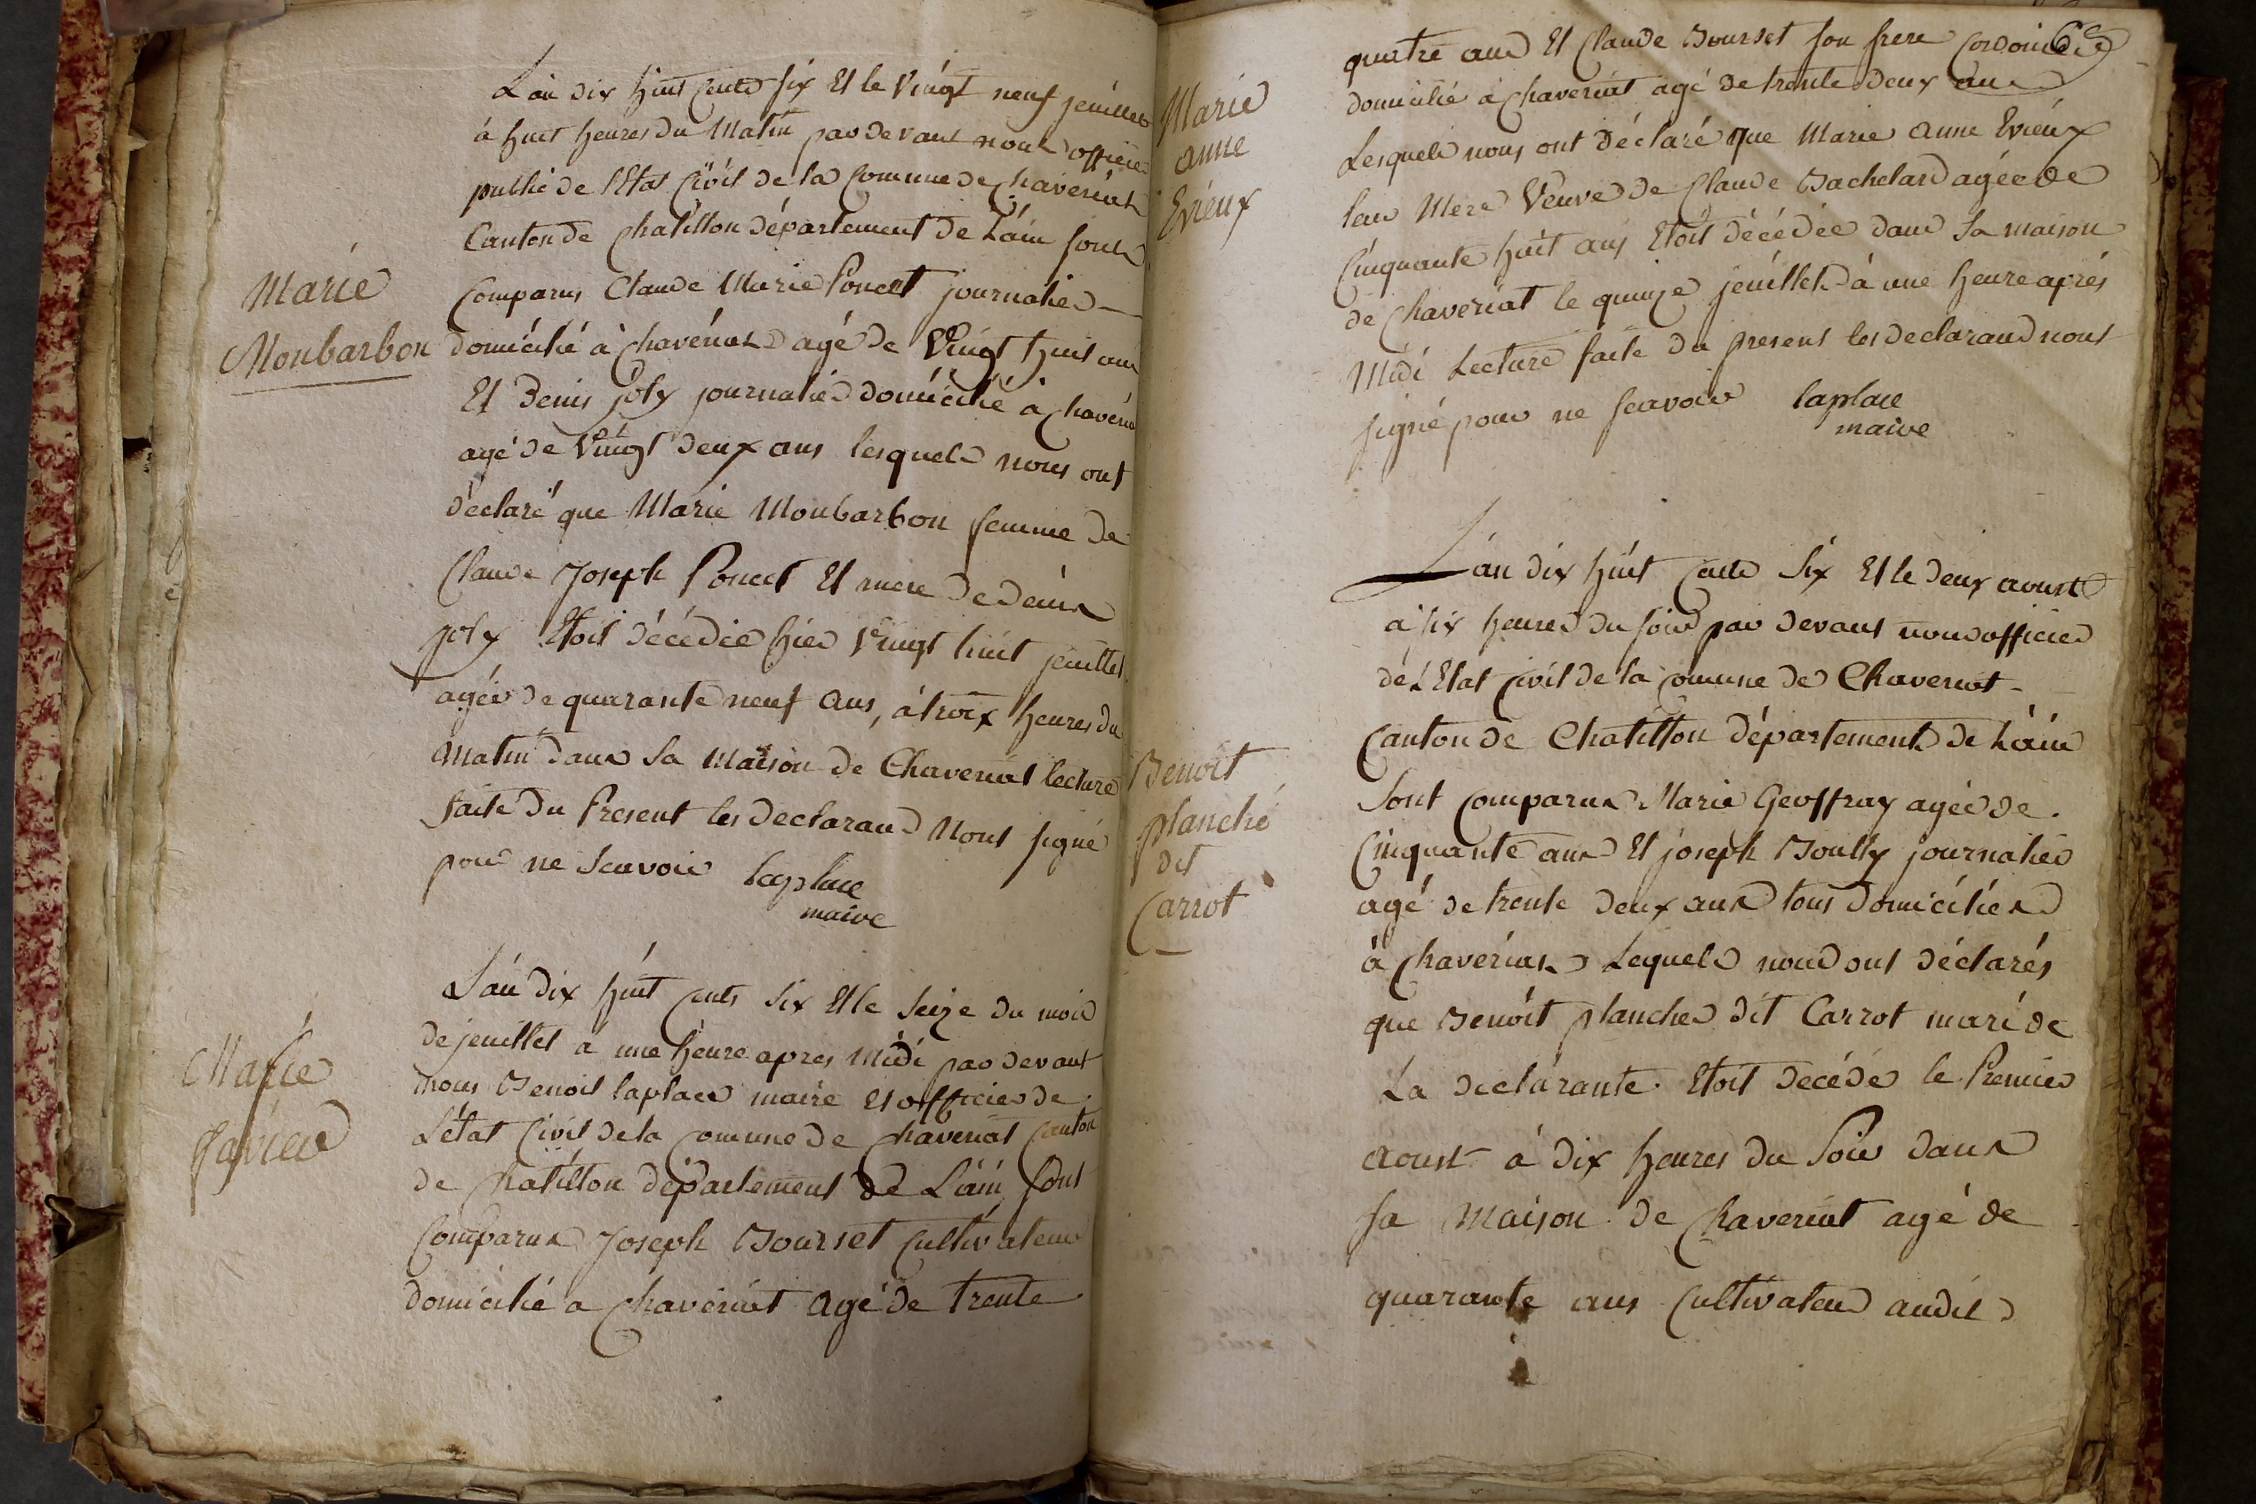 Marie
Monbarbon
L'an dix huit cents six Et le Vingt neuf jeuillet
à huit heures du Matin par devant nous officier
public de l'Etat Civil de la Commune de Chaveriat
Canton de Chatillon département de L'ain sont
Comparus Claude Marie Poncet journalier
domicilié à Chavériat agé de Vingt huit ans
Et Denis joly journalier domicilié à Chavériat
agé de Vingt deux ans lesquels nous ont
déclaré que Marie Monbarbon femme de
Claude Joseph Poncet Et mere de denis
joly Etoit décédée hier Vingt huit jeuillet
agée de quarante neuf ans, à troix heures du
Matin dans sa Maison de Chaveriat lecture
faite du Present les declarans Nont signé
pour ne Scavoir laplace
maire
Marie
L'an dix huit cents six Et le Seize du mois
de jeuillet à une heure apres Midi par devant
nous Benoit laplace maire Et officier de
L'état Civil de la Comune de Chaveriat Canton
de Chatillon département de L'ain sont
Comparus Joseph Bourset Cultivateur
domicilié a Chavériat agé de trente
Marie
anne
Evieux
quatre ans Et Claude Bourset son frere
domicilié à Chaveriat agé de trente deux ans
Lesquels nous ont déclaré que Marie anne Evieux
leur Mere Veuve de Claude Bachelard agée de
Cinquante huit ans Etoit décédée dans Sa maison
de Chaveriat le quinze jeuillet à une heure aprés
Midi Lecture faite du present les declarans nont
signé pour ne scavoir laplace
maire
Benoit
planche
dit
Carrot
L'an dix huit cents Six Et le deux aoust
à six heures du soir par devant nous officier
de L'Etat Civil de la Comune de Chaveriat
Canton de Chatillon département de L'ain
Sont Comparus Marie Geoffray agée de
Cinquante ans Et joseph Boully journalier
agé de trente deux ans tous domiciliés
à Chavériat Lequels nous ont déclarés
que Benoit planche dit Carrot mari de
La declarante Etoit decédé le Premier
aoust à dix heures du Soir dans
sa Maison de Chaveriat agé de
quarante ans Cultivateur audit